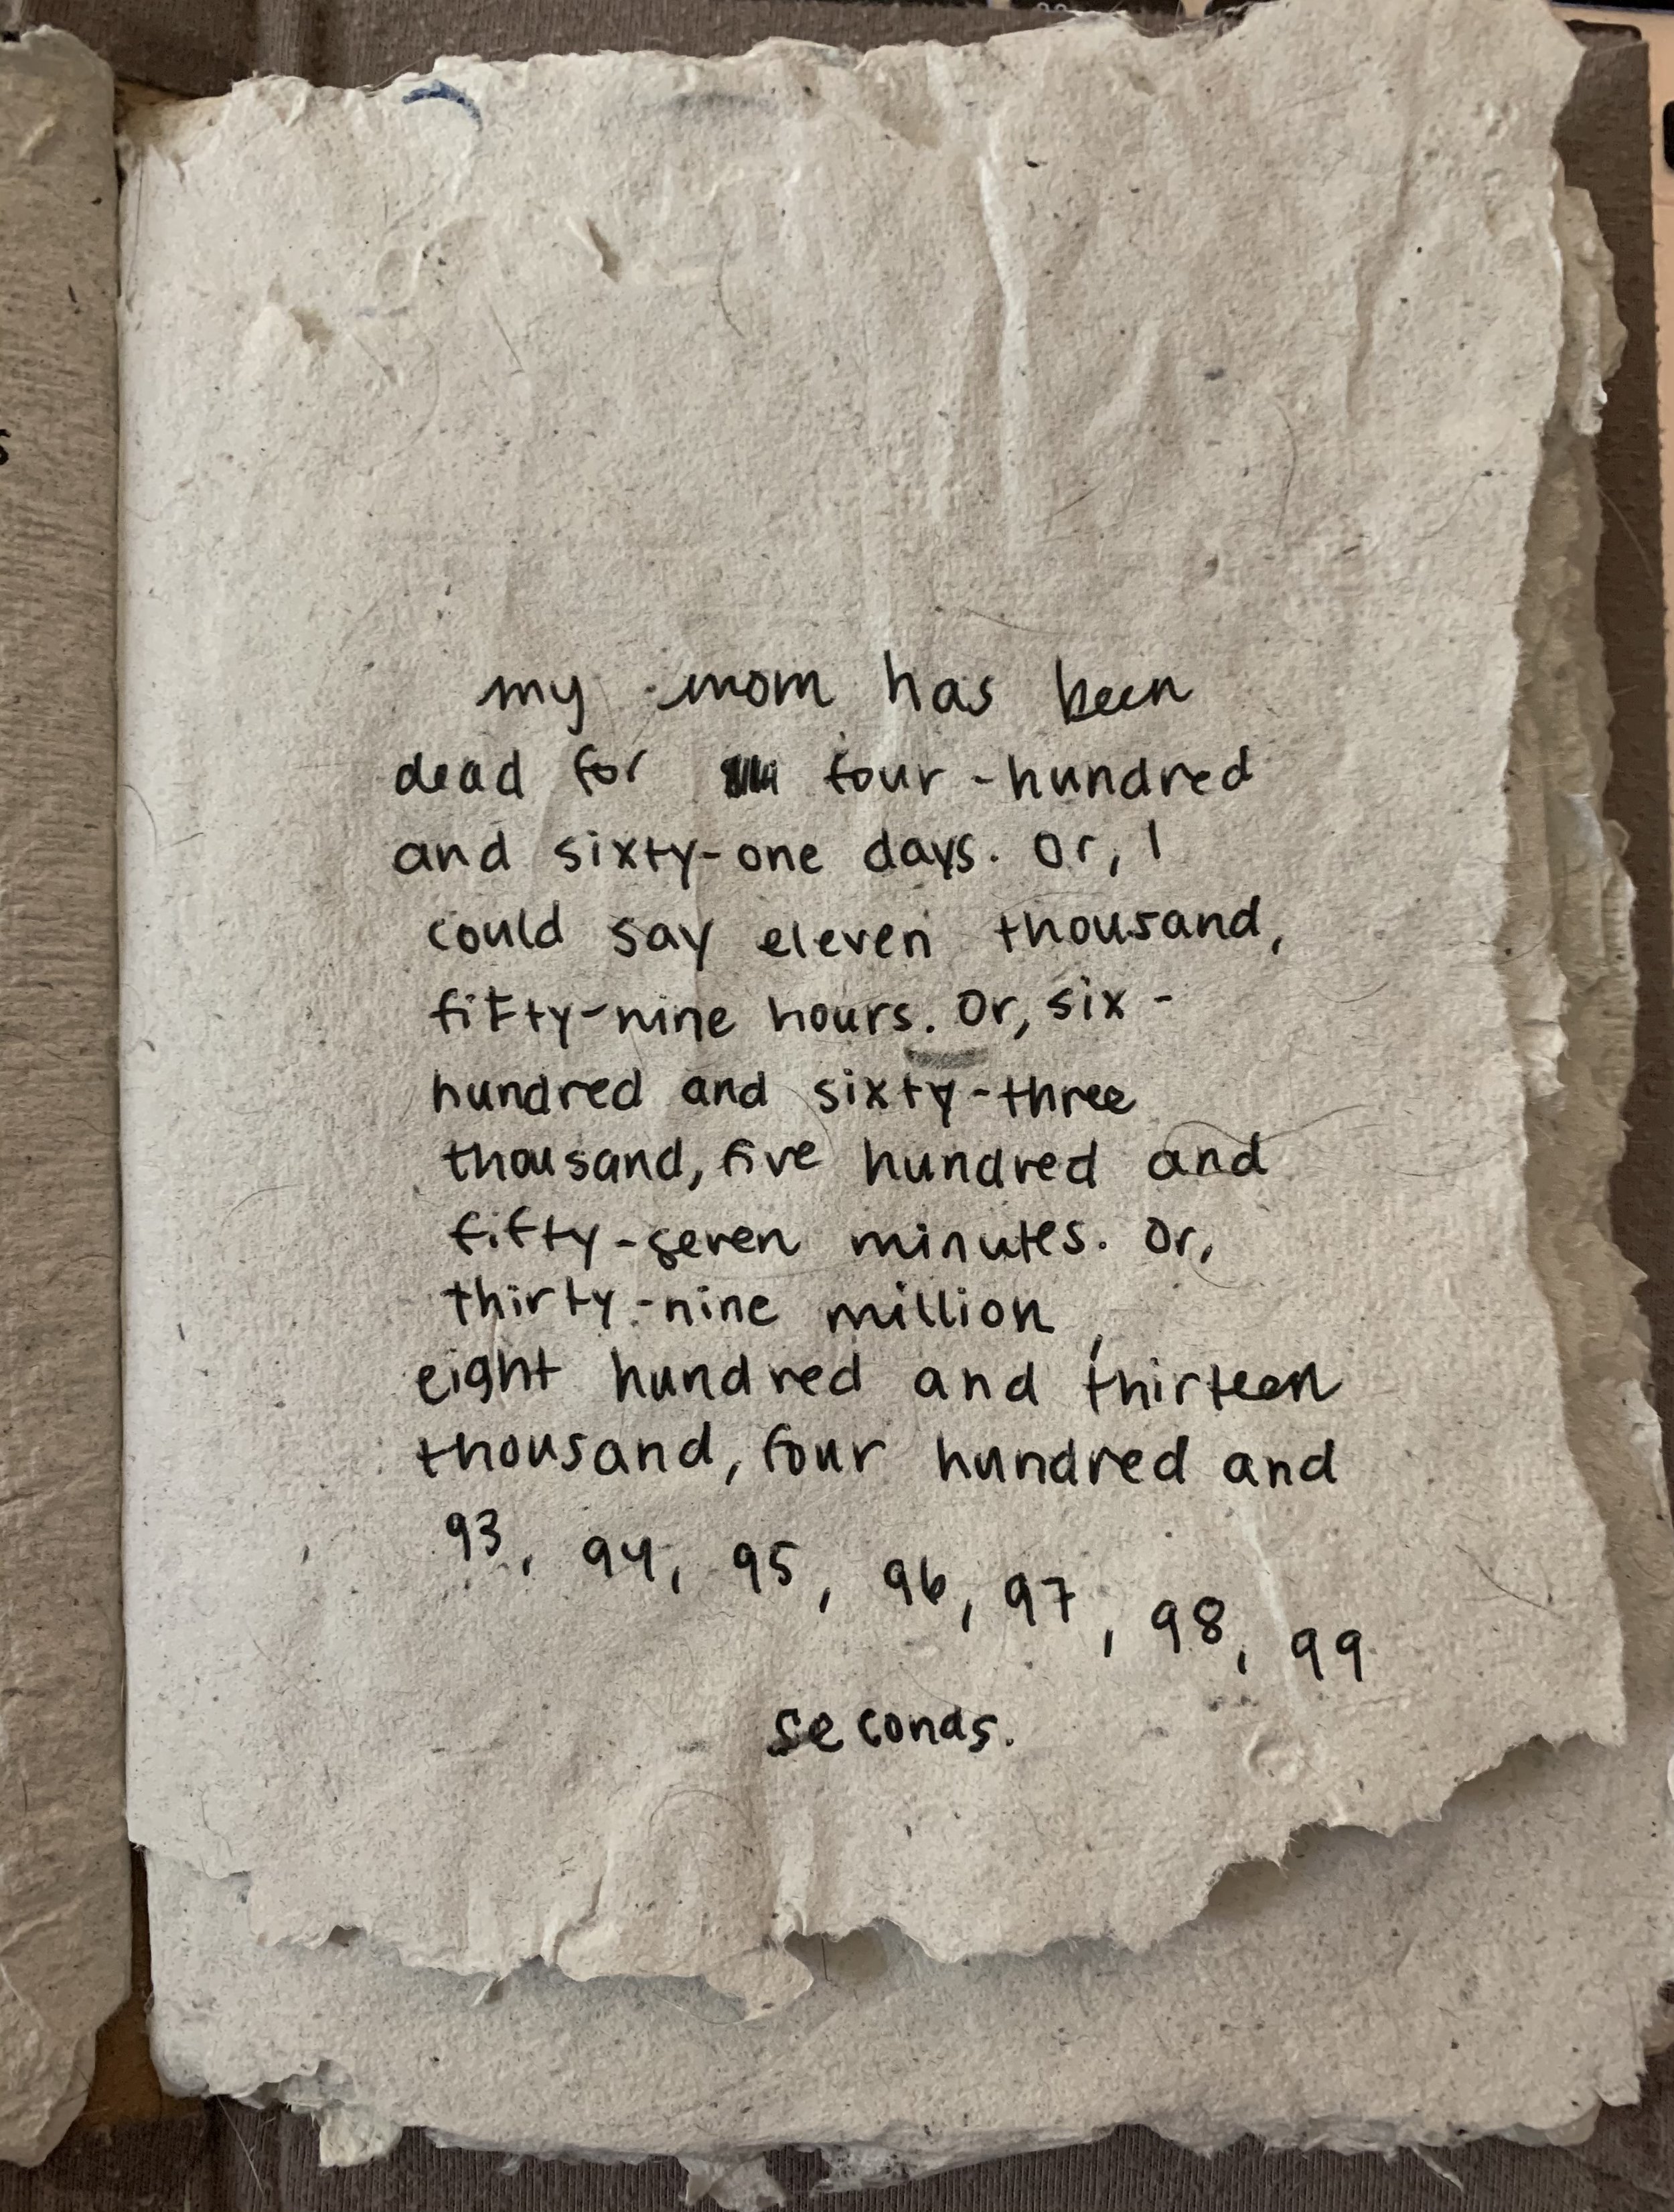 my mom has been
dead for four-hundred
and sixty-one days. Or, I
could say eleven thousand,
fifty-nine hours. Or, six-
hundred and sixty-three
thousand, five hundred and
fifty-seven minutes. Or,
thirty-nine million,
eight hundred and thirteen
thousand, four hundred and
93, 94, 95, 96, 97, 98, 99
seconds.